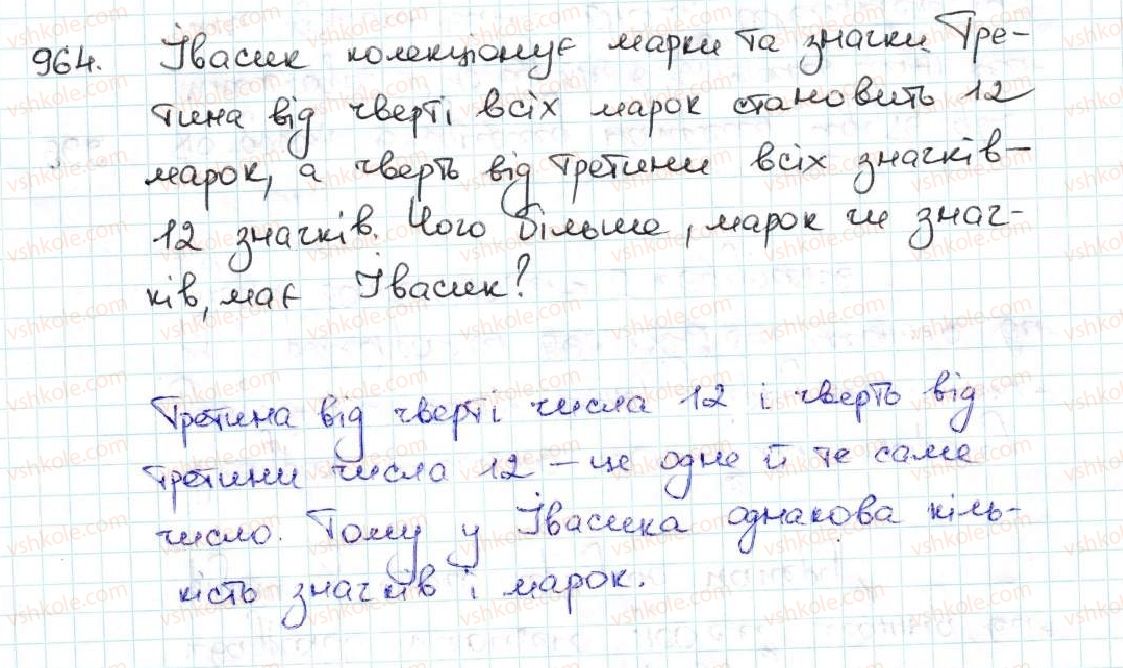 964. Івасик колекціонує марки та значки. Тре-
тина від чверті всіх марок становить 12
марок, а чверть від третини всіх значків -
12 значків. Чого більше, марок чи знач-
ків, має Івасик?
Третина від чверті числа 12 і чверть від
третини числа 12 - це одне й те саме
число. Тому у Івасика однакова кіль-
кість значків і марок.